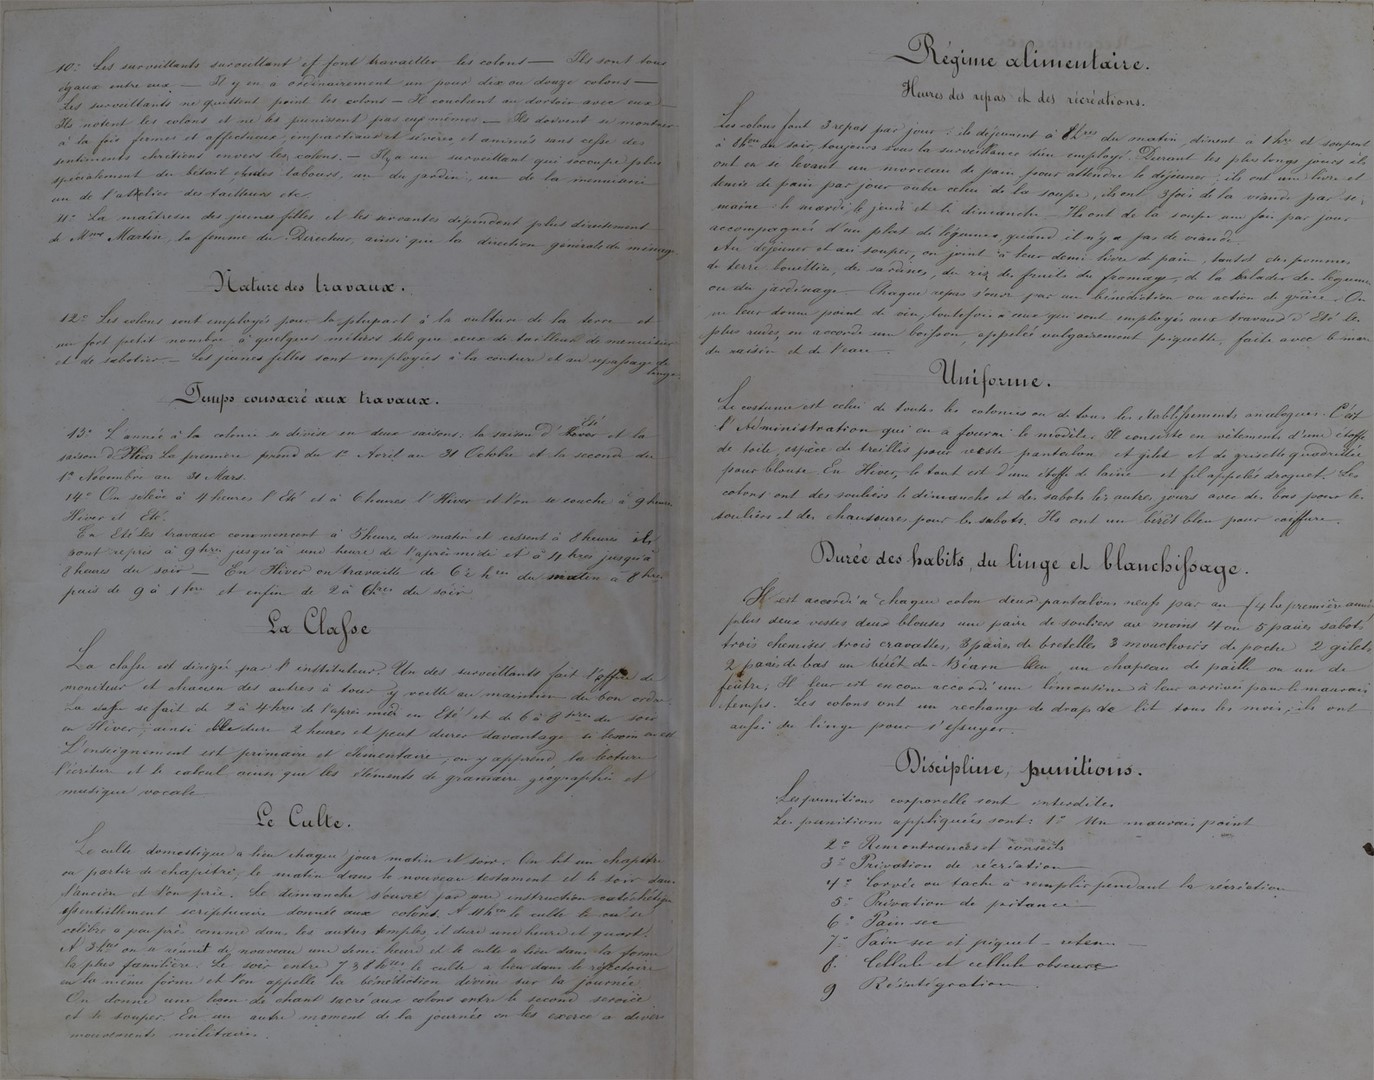 10° Les surveillants surveillent et font travailler les colons — Ils sont tous
égaux entre eux. — Il y en a ordinairement un pour dix ou douze colons —
Les surveillants ne quittent point les colons — Ils couchent au dortoir avec eux —
Ils notent les colons et ne les punissent pas eux mêmes — Ils doivent se montrer
à la fois fermes et affectueux, impartiaux et sévères, et animés sans cesse des
sentiments chrétiens envers les colons. — Il y a un surveillant qui s'occupe plus
spécialement du bétail et des labours, un du jardin, un de la menuiserie
un de l'atelier des tailleurs etc
11° La maîtresse des jeunes filles et les servantes dépendent plus directement
de Mme Martin, la femme du Directeur, ainsi que la direction générale du ménage.
Nature des travaux.
12° Les colons sont employés pour la plupart à la culture de la terre et
un fort petit nombre à quelques métiers tels que ceux de tailleur de menuisier
et de sabotier. — Les jeunes filles sont employées à la couture et au repassage du
linge.
Temps consacré aux travaux.
13° L'année à la colonie se divise en deux saisons: la saison d'Eté et la
saison d'Hiver La première prend du 1er Avril au 31 Octobre et la seconde du
1er Novembre au 31 Mars.
14° On se lève à 4 heures l'Eté et à 6 heures l'Hiver et l'on se couche à 9 heures
Hiver et Eté.
En Eté les travaux commencent à 5 heures du matin et cessent à 8 heures ils
sont repris à 9 hres jusqu'à une heure de l'après midi et à 4 hres jusqu'à
8 heures du soir — En Hiver on travaille de 6½ hres du matin à 8 hres
puis de 9 à 1 hre et enfin de 2 à 6 hres du soir.
La Classe
La classe est dirigée par l'instituteur. Un des surveillants fait l'office de
moniteur et chacun des autres à tour y veille au maintien du bon ordre.
La classe se fait de 2 à 4 hres de l'après midi en Eté et de 6 à 8 hres du soir
en Hiver; ainsi elle dure 2 heures et peut durer davantage si besoin en est
L'enseignement est primaire et élémentaire, on y apprend la lecture
l'écriture et le calcul ainsi que les éléments de grammaire géographie et
musique vocale
Le Culte.
Le culte domestique a lieu chaque jour matin et soir. On lit un chapitre
ou partie de chapitre, le matin dans le nouveau testament et le soir dans
l'ancien et l'on prie. Le dimanche s'ouvre par une instruction catéchétique
essentiellement scripturaire donnée aux colons. A 11 hres le culte se
célèbre à peu près comme dans les autres temples et dure une heure et quart.
A 3 hres on se réunit de nouveau une demi heure et le culte a lieu dans la forme
la plus familière. Le soir entre 7 & 8 hres le culte a lieu dans le réfectoire
en la même forme et l'on appelle la bénédiction divine sur la journée
On donne une leçon de chant sacré aux colons entre le second service
et le souper. En un autre moment de la journée on les exerce à divers
mouvements militaires.
Régime alimentaire.
Heures des repas et des récréations.
Les colons font 3 repas par jour: ils déjeunent à 8 hres du matin, dînent à 1 hre et soupent
à 8 hres du soir, toujours sous la surveillance d'un employé. Durant les plus longs jours ils
ont en se levant un morceau de pain pour attendre le déjeuner; ils ont une livre et
demie de pain par jour outre celui de la soupe, ils ont 3 fois de la viande par se-
maine le mardi, le jeudi et le dimanche — Ils ont de la soupe une fois par jour
accompagnée d'un plat de légumes, quand il n'y a pas de viande.
Au déjeuner et au souper, on joint à leur demi livre de pain, tantôt des pommes
de terre bouillies, des sardines, du riz, des fruits du fromage, de la salade des légumes
ou du jardinage — Chaque repas s'ouvre par une bénédiction ou action de grâce. On
ne leur donne point de vin, toutefois à ceux qui sont employés aux travaux d'Eté les
plus rudes, on accorde une boisson, appelée vulgairement piquette, faite avec le marc
du raisin et de l'eau.
Uniforme.
Le costume est celui de toutes les colonies ou de tous les établissements analogues. C'est
l'Administration qui en a fourni le modèle. Il consiste en vêtements d'une étoffe
de toile, espèce de treillis pour veste pantalon et gilet et de grisette quadrillée
pour blouse. En Hiver, le tout est d'une étoffe de laine et fil appelée droguet. Les
colons ont des souliers le dimanche et des sabots les autres jours avec des bas pour les
souliers et des chaussures pour les sabots. Ils ont un béret bleu pour coiffure.
Durée des habits, du linge et blanchissage.
Il est accordé à chaque colon deux pantalons neufs par an (4 la première année
plus deux vestes deux blouses une paire de souliers au moins 4 ou 5 paires sabots
trois chemises trois cravattes, 3 paires de bretelles 3 mouchoirs de poche 2 gilets
2 paires de bas un béret de Béarn bleu un chapeau de paille ou un de
feutre; Il leur est encore accordé une limousine à leur arrivée pour le mauvais
temps. Les colons ont un rechange de drap de lit tous les mois, ils ont
aussi du linge pour s'essuyer.
Discipline, punitions.
Les punitions corporelle sont interdites.
Les punitions appliquées sont: 1° Un mauvais point
2° Remontrances et conseils
3° Privation de récréation
4° Corvée ou tache à remplir pendant la récréation
5° Privation de pitance
6° Pain sec
7° Pain sec et piquet — retenu —
8. Cellule et cellule obscure
9 Réintégration.